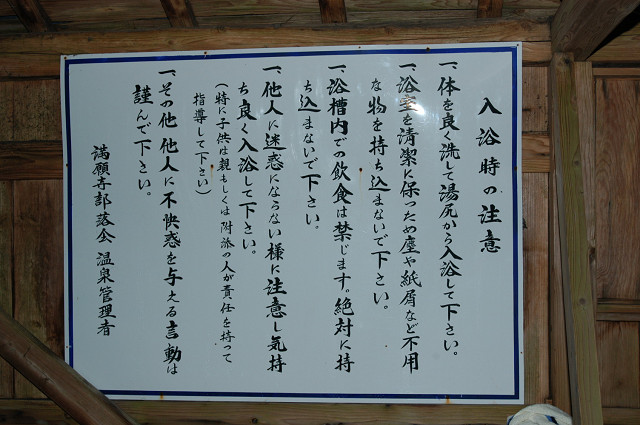 入浴時の注意
一、体を良く洗て湯尻から入浴して下さい。
一、浴室を清潔に保つため塵や紙屑など不用
な物を持ち込まないで下さい。
一、浴槽内での飲食は禁じます。絶対に持
ち込まないで下さい。
一、他人に迷惑にならない様に注意し気持
ち良く入浴して下さい。
(特に子供は親もしくは附添の人が責任を持って
指導して下さい)
一、その他他人に不快感を与える言動は
謹んで下さい。
満願寺部落会 温泉管理者